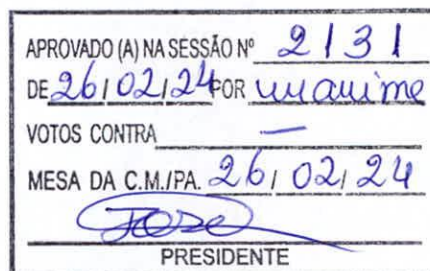 APROVADO (A) NA SESSÃO Nº 2131
DE 26/02/24 POR unanime
VOTOS CONTRA —
MESA DA C.M./PA. 26/02/24
José
PRESIDENTE